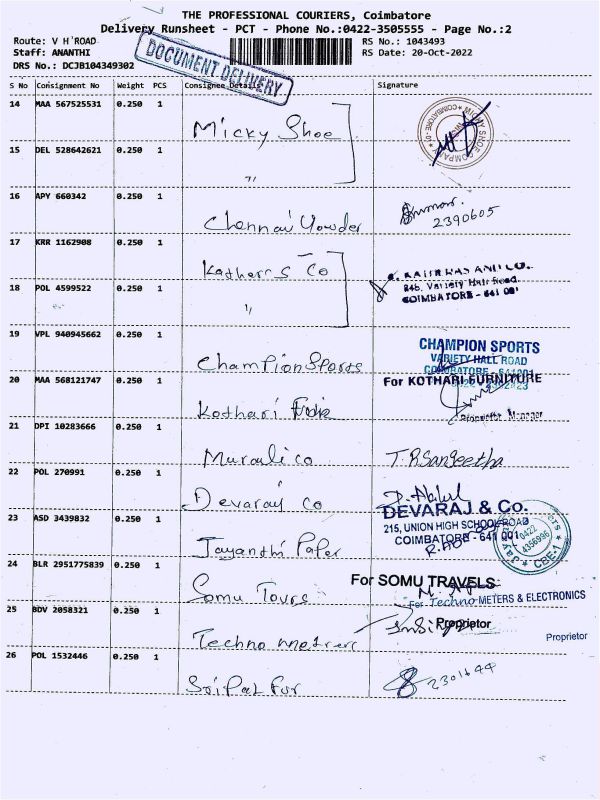 THE PROFESSIONAL COURIERS, Coimbatore
Delivery Runsheet - PCT - Phone No.:0422-3505555 - Page No.:2
Route: V H ROAD
RS No.: 1043493
Staff: ANANTHI
RS Date: 20-Oct-2022
DRS No.: DCJB104349302
DOCUMENT DELIVERY
S No Consignment No Weight PCS Consignee Details Signature
14 MAA 567525531 0.250 1
Micky Shoe
15 DEL 528642621 0.250 1
"
16 APY 660342 0.250 1
Chennai Powder
2390605
17 KRR 1162908 0.250 1
Kothari S Co
18 POL 4599522 0.250 1
"
COIMBATORE - 641 001
19 VPL 940945662 0.250 1
Champion Sports
CHAMPION SPORTS
VARIETY HALL ROAD
COIMBATORE - 641001
20 MAA 568121747 0.250 1
Kothari
For KOTHARI FURNITURE
Manager
21 DPI 10283666 0.250 1
Murali co
T.R Sangeetha
22 POL 270991 0.250 1
Devaraj co
DEVARAJ & Co.
215, UNION HIGH SCHOOL ROAD
COIMBATORE - 641 001
23 ASD 3439832 0.250 1
Jayanthi Paper
0422
4356996
CBE-1
24 BLR 2951775839 0.250 1
Somu Tours
For SOMU TRAVELS
For Techno METERS & ELECTRONICS
25 BDV 2058321 0.250 1
Techno meters
Proprietor
Proprietor
26 POL 1532446 0.250 1
Sri Pal Fur
2301644